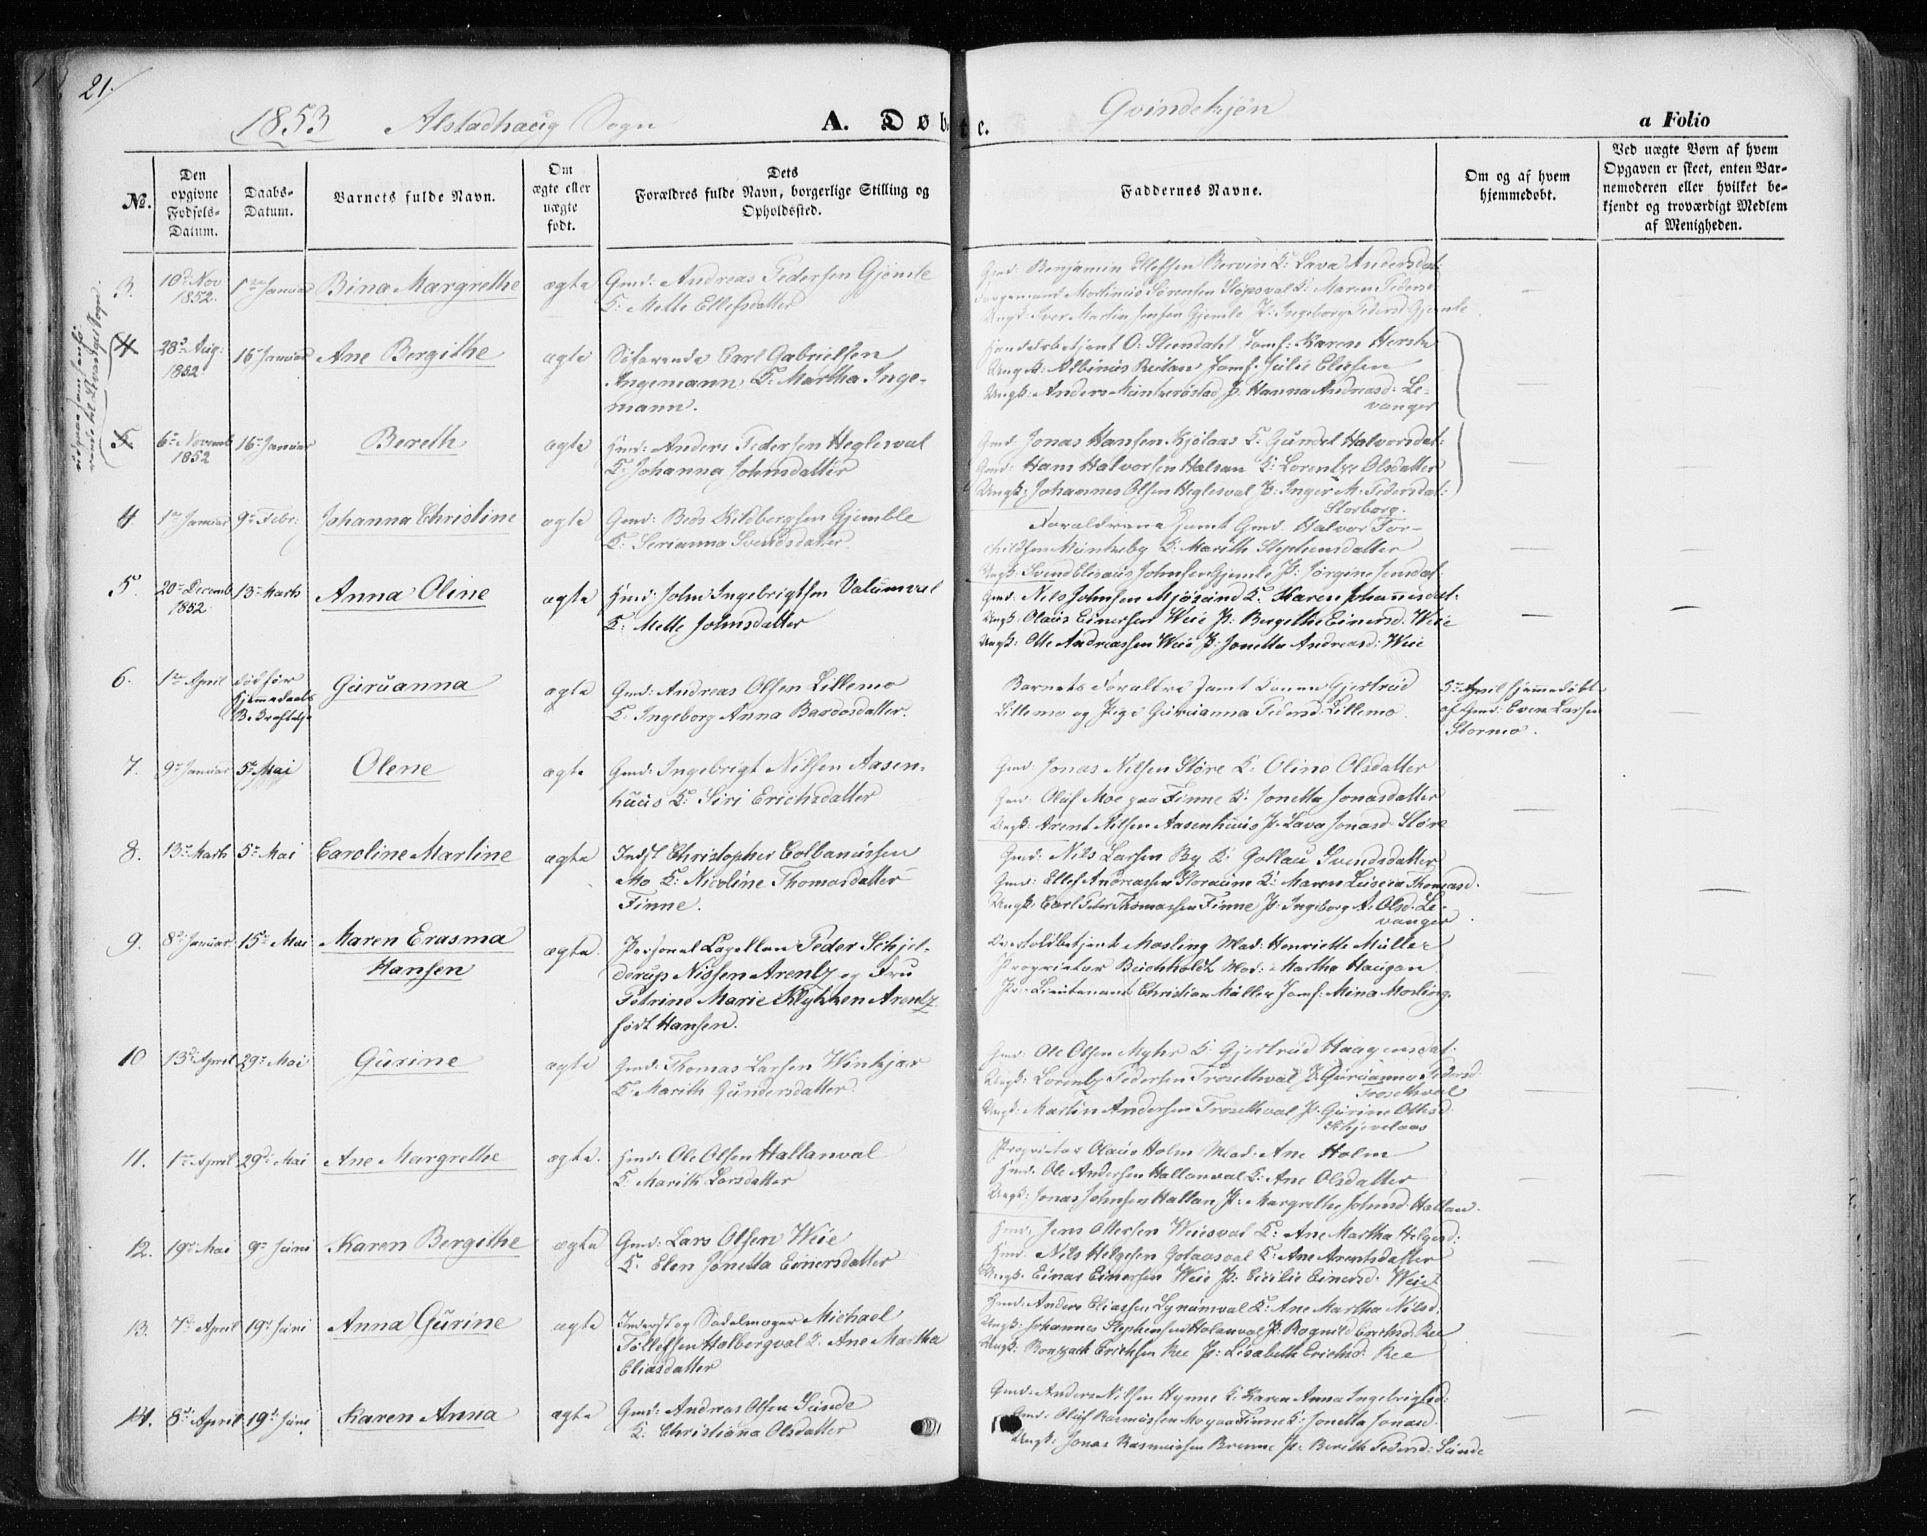 21.
1853 Alstadhaug Sogn A. Døbte. Qvindekjøn a Folio
No. Den opgivne Fødsels-Datum. Daabs-Datum. Barnets fulde Navn. Om ægte eller uægte født. Dets Forældres fulde Navn, borgerlige Stilling og Opholdssted. Faddernes Navne. Om og af hvem hjemmedøbt. Ved uægte Børn af hvem Opgaven er skeet, enten Barnemoderen eller hvilket bekjendt og troværdigt Medlem af Menigheden.
3. 10de Nov 1852. 1ste Januar Bina Margrethe ægte Gmd: Andreas Pedersen Gjemle
K: Mette Ellefsdatter
Gmd: Benjamin Ellefsen Bervin K: Lava Andersdat:
Mortinus Sørensen Støpsval K: Maren Pedersd
Ungk: Iver Martin Jensen Gjemle P: Ingeborg Pedersd Gjemle
4 28de Aug: 1852 16 Januar Ane Bergithe ægte Søfarende Carl Gabrielsen
Ingemann K: Martha Inge-
mann.
Handelsbetjent O: Steendahl Jomf: Karen Herstø
Ungk: Albinus Reitan Jomf: Julie Elissen
Ungk: Anders Muntrøstad P: Hanna Andreasd: Le-
vanger
5 6te Novemb 1852 16de Januar Bereth ægte Hmd: Anders Pedersen Heglesval
K: Johanna Johnsdatter
Gmd: Jonas Hansen Kjølaas K: Gunnel Halvorsdat:
Gmd: Hans Halvorsen Halsan K: Lorentze Olsdatter
Ungk: Johannes Olsen Heglesval P: Inger M. Pedersdat:
Storborg.
4 1ste Januar 9de Febr: Johanna Christine ægte Gmd: Beds Kildbergsen Gjemble
K: Serianna Svendsdatter.
Forældrene samt Gmd: Halvor Tor-
childsen Muntreby K: Marith Stephensdatter
Ungk: Svend Elisæus Johnsen Gjemle P: Jørgine Jensdat:
5. 20de Decemb 1852. 13de Marts Anna Oline ægte Hmd: John Ingebrigtsen Valumval
K: Mette Johnsdatter
Gmd: Nils Johnsen Mjøsund K: Karen Johannisdat:
Ungk: Olaus Einersen Weie P: Bergithe Einersd: Weie
Ungk: Olle Andreassen Weie P: Jonetta Andreasd: Weie
6. 1ste April død før Hjemmedaabs Bekræftelse Guruanna ægte Gmd: Andreas Olsen Lillemo
K: Ingeborg Anna Bardosdatter.
Barnets Forældre samt Konen Gjertrud
Lillemo og Pige Guruanna Pedersd: Lillemo.
5te April hjemmedøbt
af Gmd: Even Larsen
Stormo.
7. 9de Januar 5te Mai Olene ægte Gmd: Ingebrigt Nilsen Aasen-
huus K: Siri Erichsdatter
Gmd: Jonas Nilsen Støre K: Oline Olsdatter
Gmd: Oluf Moe paa Finne K: Jonetta Jonasdatter
Ungk: Arent Nilsen Aasenhuus P: Lava Jonasd: Støre
8. 13de Marts 5te Mai Caroline Martine ægte Indst Christopher Colbanussen
Mo K: Nicoline Thomasdatter
Finne.
Gmd: Nils Larsen By K: Gollau Svendsdatter
Gmd: Ellef Andreassen Storaune K: Maren Lucia Thomasd.
Ungk: Carl Peter Thomassen Finne P: Ingeborg A: Olsd: Le-
vanger.
9. 8de Januar 15de Mai Maren Erasma
Hansen ægte. Personel Capellan Peder Schjel-
derup Nissen Arentz og Fru
Petrine Marie Klykken Arentz
født Hansen.
Overtoldbetjent Mosling Mad: Henriette Müller
Proprietær Buchholdt Mad: Martha Haugan
Pr: Lieutenant Christian Müller Jomf: Mina Mosling.
10 13de April 29de Mai Gurine ægte Gmd: Thomas Larsen Winkjær
K: Marith Gundersdatter.
Gmd: Ole Olsen Myhr K: Gjertrud Haagensdat:
Ungk: Lorentz Pedersen Trosethval P: Guruanna Pedersd:
Trosethval
Ungk: Martin Andersen Trosethval P: Gurine Ottesd:
Schjevelaas
11. 1ste April 29de Mai Ane Margrethe ægte. Hmd: Ole Olsen Hallanval
K: Marith Larsdatter
Proprietær Olaus Holm Mad: Ane Holm
Hmd: Ole Andersen Hallanval K: Ane Olsdatter
Ungk: Jonas Johnsen Hallan P: Margrethe Johnsd: Hallan.
12. 19de Mai 9de Juni Karen Bergithe ægte Gmd: Lars Olsen Weie
K: Elen Jonetta Einersdatter
Hmd: Jens Ottersen Weiesval K: Ane Martha Helgesd:
Hmd: Nils Helgesen Golaasval K: Ane Arentsdatter
Ungk: Einar Einersen Weie P: Cicilie Einersd: Weie
13. 7de April 19de Juni Anna Gurine ægte Inderst og Sadelmager Michael
Tollefsen Holbergval K: Ane Martha
Eliasdatter
Hmd: Anders Eliassen Lynumval K: Ane Martha Nilsd:
Ungk: Johannes Stephensen Holanval P: Ragnild Erichsd: Ree
Ungk: Erichsen Ree P: Lisabeth Erichsd: Ree
14. 8de April 19de Juni Karen Anna ægte Gmd: Andreas Olsen Sunde
K: Christiana Olsdatter
Gmd: Anders Nilsen Hynne K: Karen Anna Ingebrigtsd:
Gmd: Oluf Rasmussen Mo paa Finne K: Jonetta Jonasd:
Ungk: Jonas Rasmussen Brenne P: Bereth Pedersd: Sunde